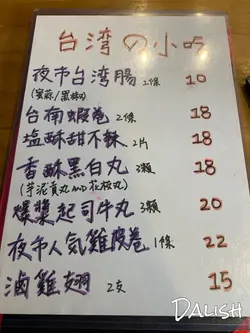 台湾の小吃
夜市台湾腸 2條 10
(蒜/黑椒)
台南蝦卷 2條 18
塩酥甜不辣 2片 18
香酥黑白丸 3顆 18
(芋泥貢丸and花枝丸)
爆漿起司牛丸 3顆 20
夜市人気雞皮卷 1條 22
滷雞翅 2支 15
DALISH